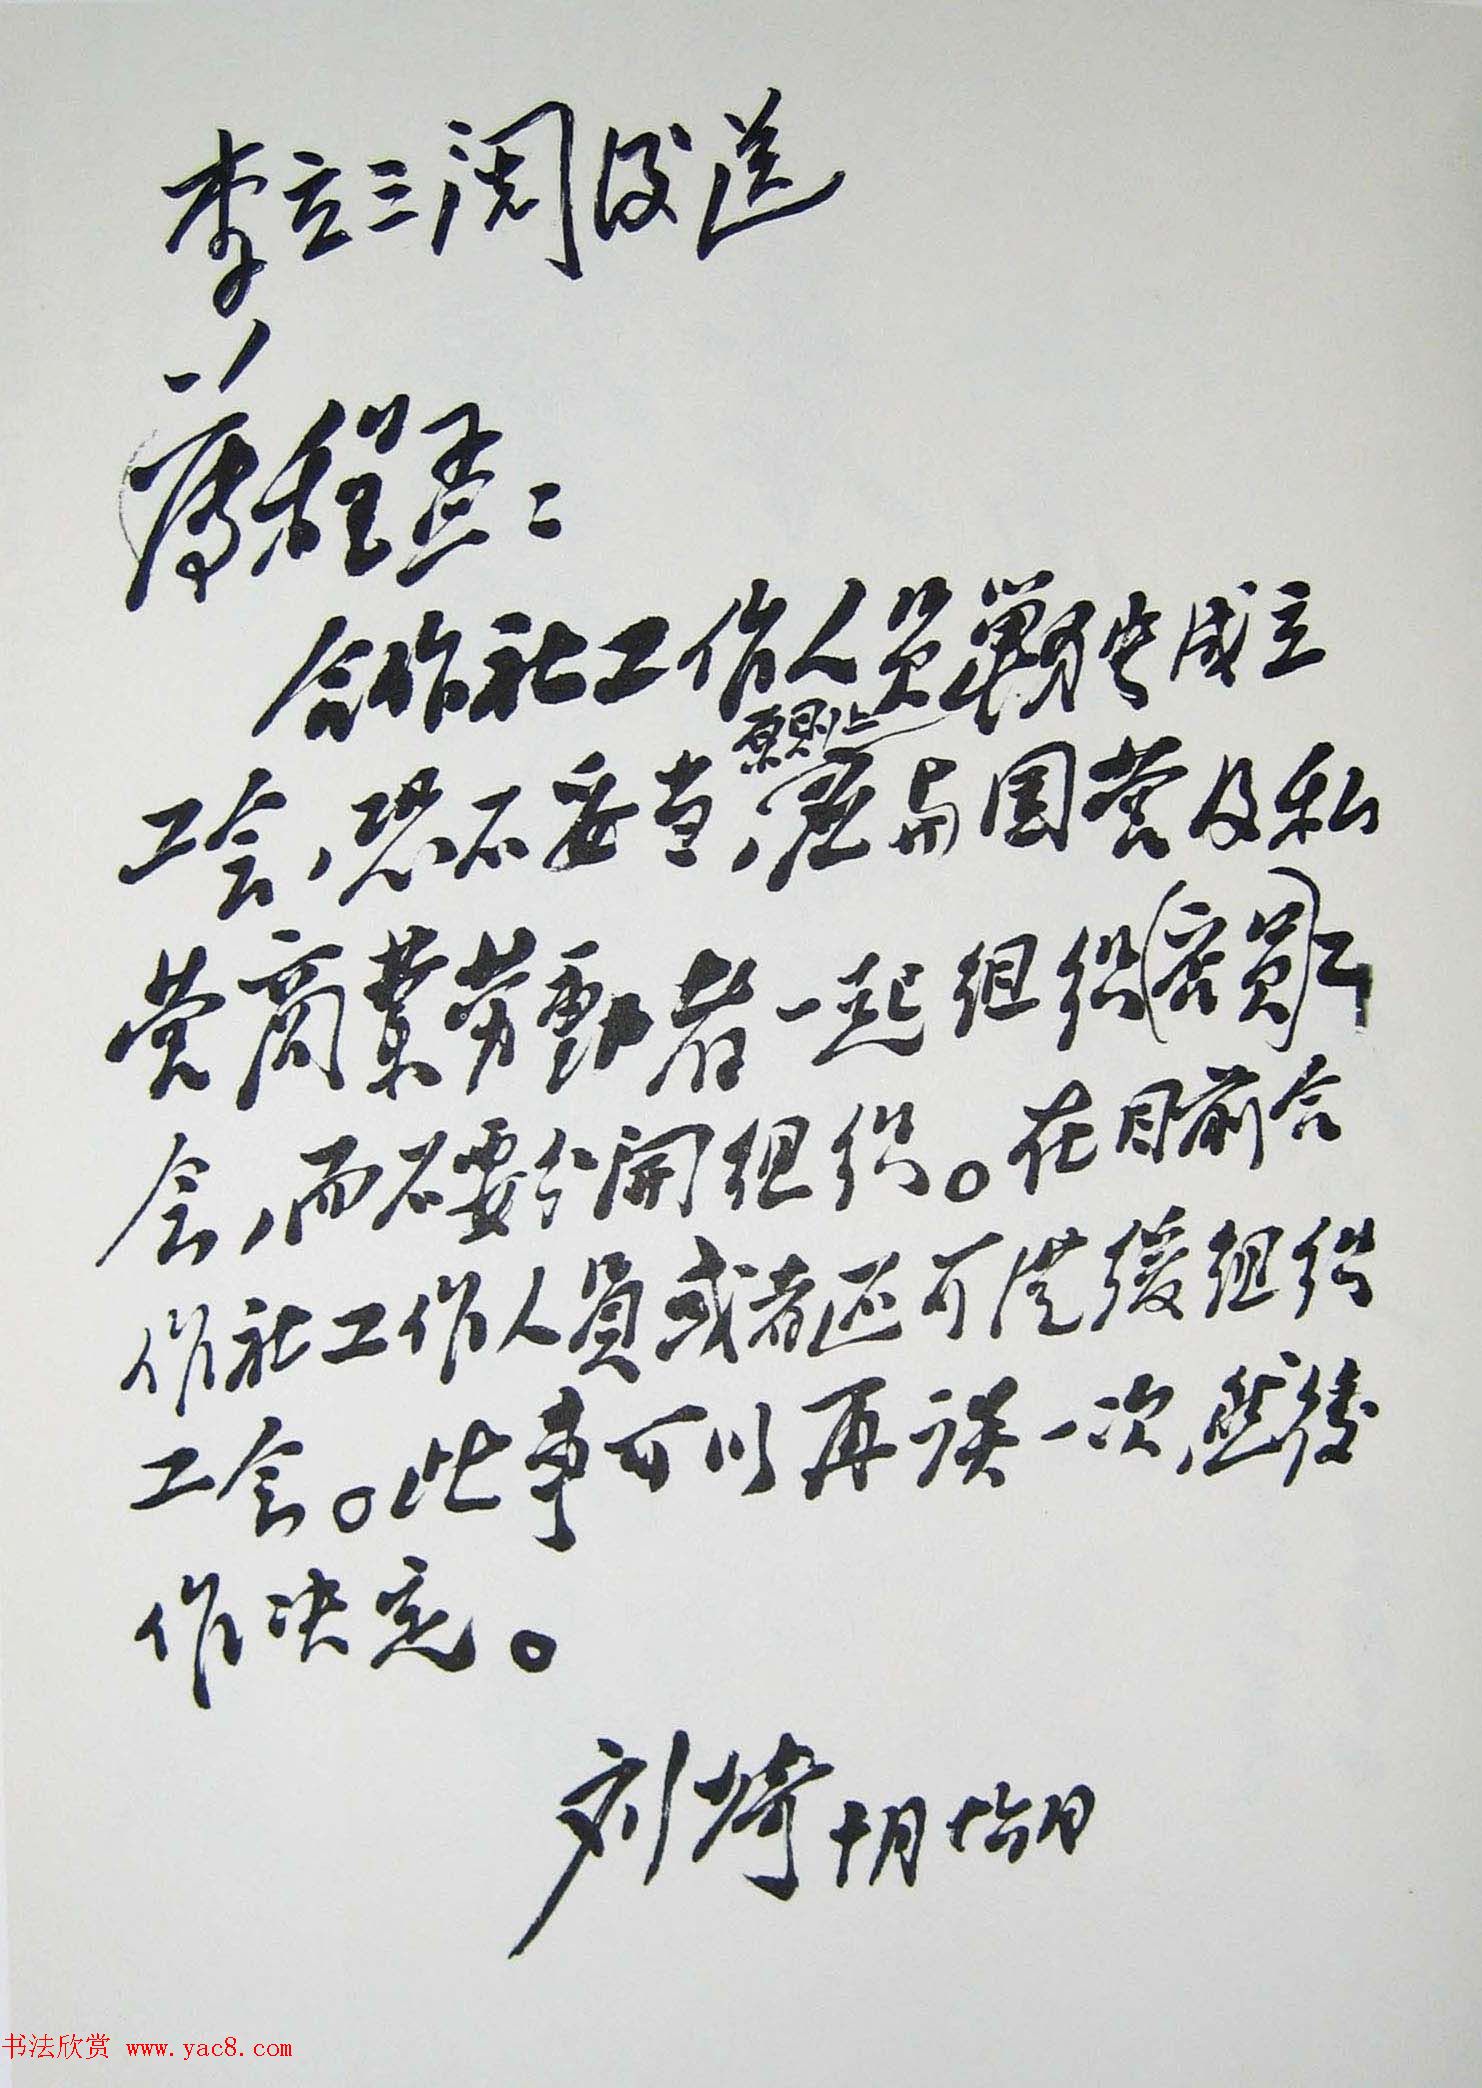 李立三阅後送
薄程孟：
合作社工作人员單独成立
原则上
工会，恐不妥当，应与国营及私
营商業劳動者一起组织(店员)工
会，而不要分開组织。在目前合
作社工作人員或者还可从缓组织
工会。此事可以再谈一次，然後
作决定。
刘少奇十月十六日
书法欣赏 www.yac8.com